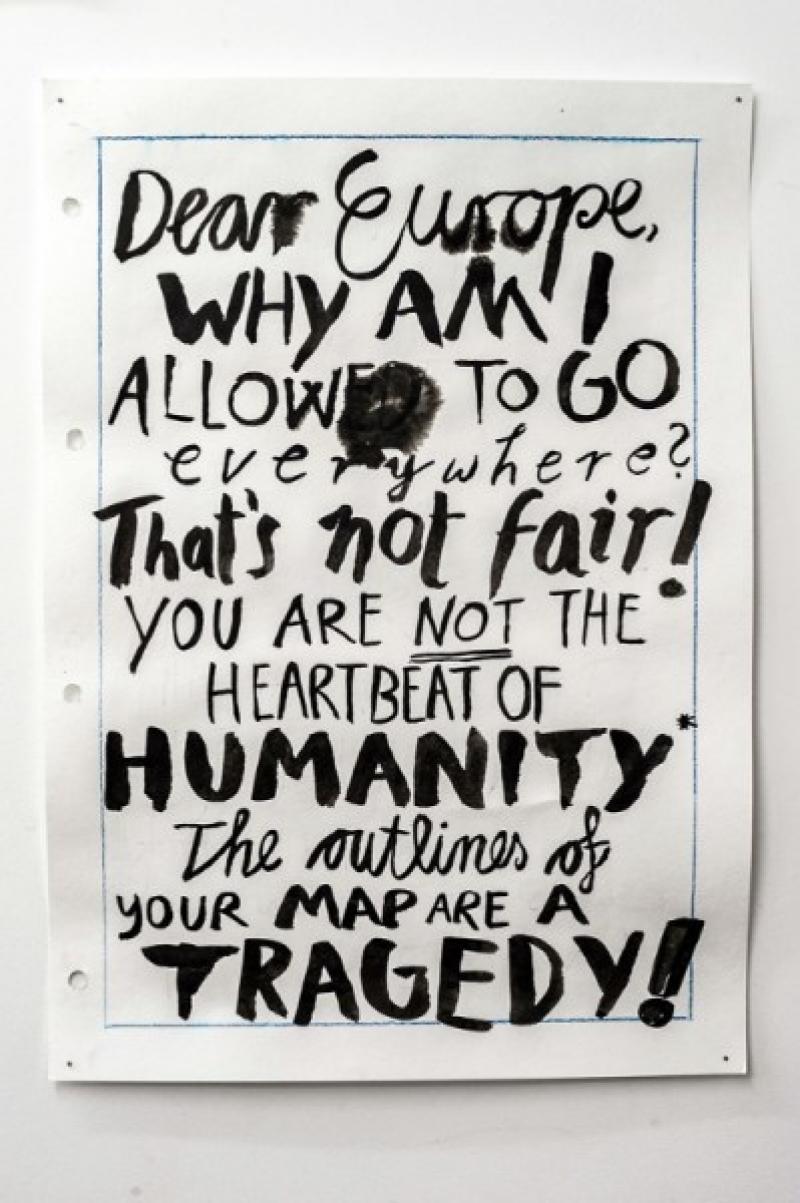 Dear Europe,
WHY AM I
ALLOWED TO GO
everywhere?
That's not fair!
YOU ARE NOT THE
HEARTBEAT OF
HUMANITY*
The outlines of
YOUR MAP ARE A
TRAGEDY!